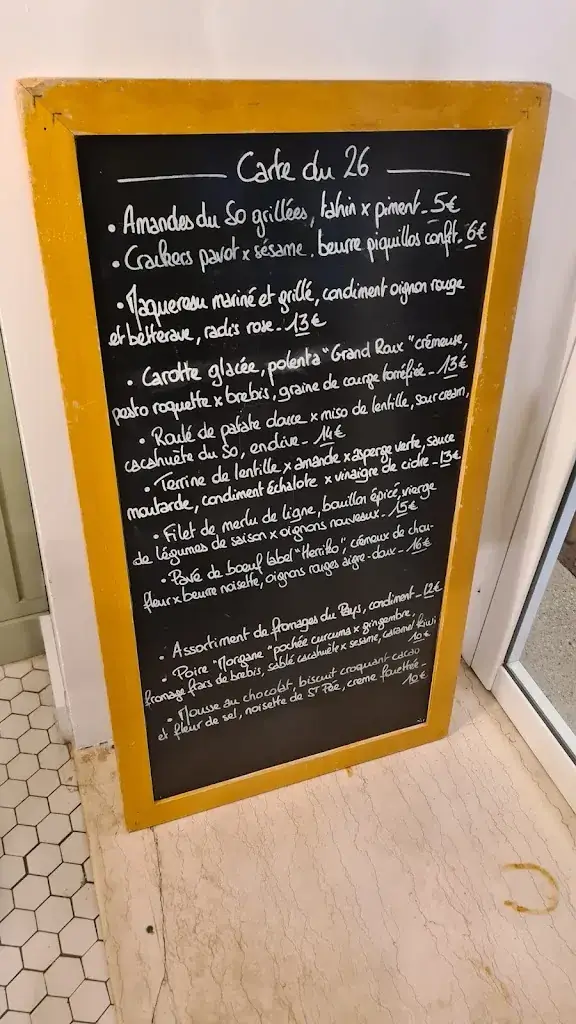 Carte du 26
• Amandes du So grillées, tahin x piment - 5€
• Crackers pavot x sésame, beurre piquillos confit - 6€
• Maquereau mariné et grillé, condiment oignon rouge
et betterave, radis rose - 13€
• Carotte glacée, polenta "Grand Roux" crémeuse,
pesto roquette x brebis, graine de courge torréfiée - 13€
• Roulé de patate douce x miso de lentille, sour cream,
cacahuète du So, endive - 14€
• Terrine de lentille x amande x asperge verte, sauce
moutarde, condiment échalote x vinaigre de cidre - 13€
• Filet de merlu de ligne, bouillon épicé, vierge
de légumes de saison x oignons nouveaux - 15€
• Pavé de boeuf label "Herriko", crémeux de chou-
fleur x beurre noisette, oignons rouges aigre-doux - 16€
• Assortiment de fromages du Pays, condiment - 12€
• Poire "Morgane" pochée curcuma x gingembre,
fromage frais de brebis, sablé cacahuète x sésame, caramel kiwi
10€
• Mousse au chocolat, biscuit croquant cacao
et fleur de sel, noisette de St Pée, crème fouettée -
10€